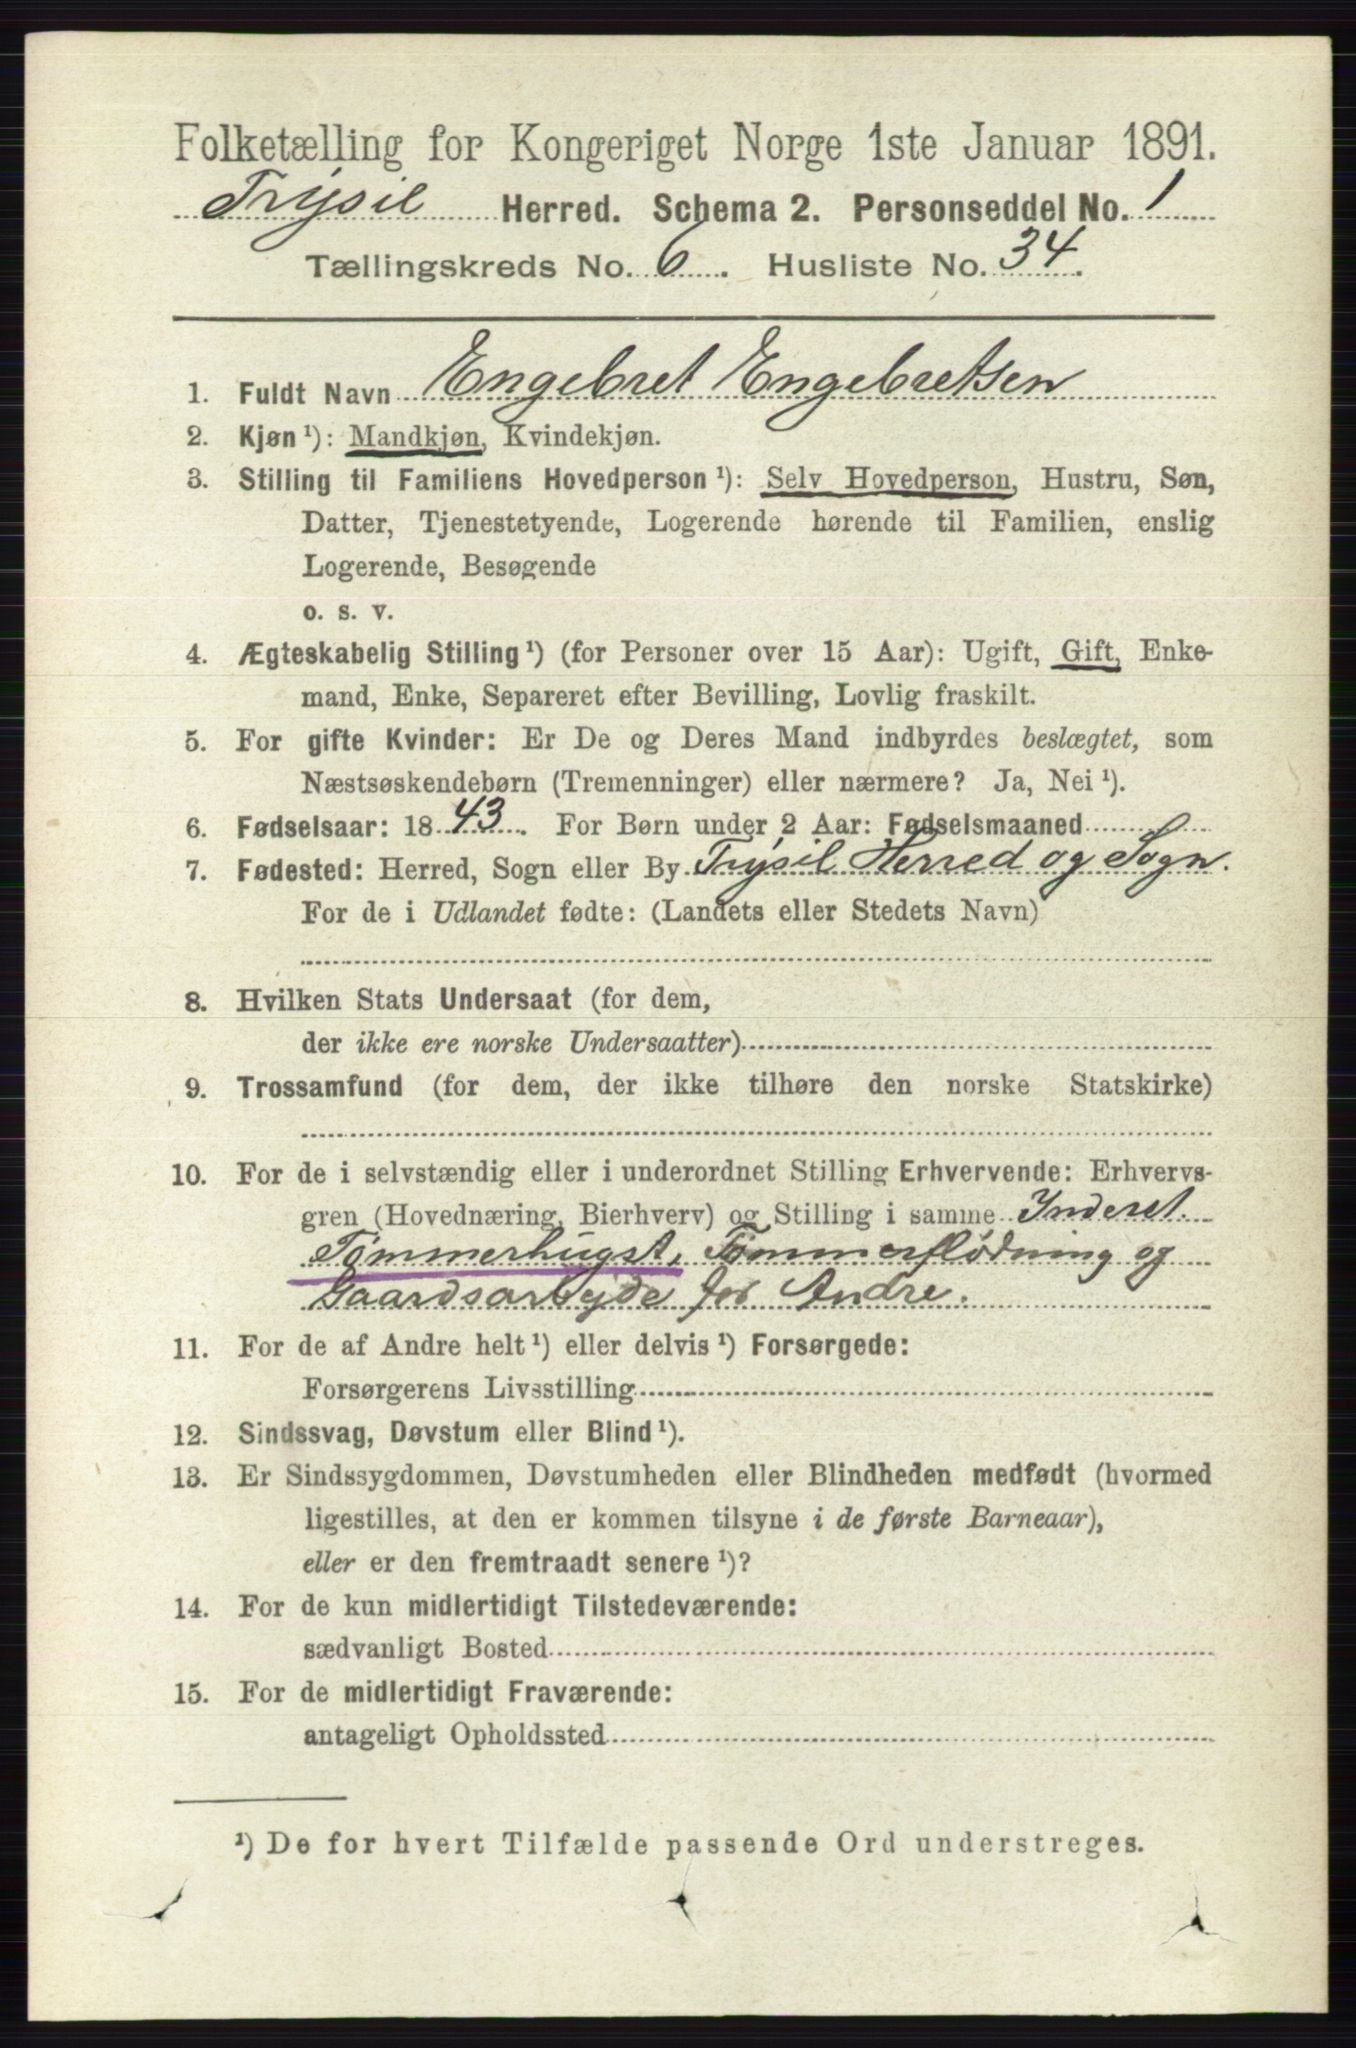 Folketælling for Kongeriget Norge 1ste Januar 1891.
Trysil Herred. Schema 2. Personseddel No. 1
Tællingskreds No. 6. Husliste No. 34.
1. Fuldt Navn Engebret Engebretsen
2. Kjøn ¹): Mandkjøn, Kvindekjøn.
3. Stilling til Familiens Hovedperson ¹): Selv Hovedperson, Hustru, Søn,
Datter, Tjenestetyende, Logerende hørende til Familien, enslig
Logerende, Besøgende
o. s. v.
4. Ægteskabelig Stilling ¹) (for Personer over 15 Aar): Ugift, Gift, Enke-
mand, Enke, Separeret efter Bevilling, Lovlig fraskilt.
5. For gifte Kvinder: Er De og Deres Mand indbyrdes beslægtet, som
Næstsøskendebørn (Tremenninger) eller nærmere? Ja, Nei ¹).
6. Fødselsaar: 1843. For Børn under 2 Aar: Fødselsmaaned
7. Fødested: Herred, Sogn eller By Trysil Herred og Sogn.
For de i Udlandet fødte: (Landets eller Stedets Navn)
8. Hvilken Stats Undersaat (for dem,
der ikke ere norske Undersaatter)
9. Trossamfund (for dem, der ikke tilhøre den norske Statskirke)
10. For de i selvstændig eller i underordnet Stilling Erhvervende: Erhvervs-
gren (Hovednæring, Bierhverv) og Stilling i samme Inderst.
Tømmerhugst, Tømmerflødning og
Gaardsarbejde for Andre.
11. For de af Andre helt ¹) eller delvis ¹) Forsørgede:
Forsørgerens Livsstilling
12. Sindssvag, Døvstum eller Blind ¹).
13. Er Sindssygdommen, Døvstumheden eller Blindheden medfødt (hvormed
ligestilles, at den er kommen tilsyne i de første Barneaar),
eller er den fremtraadt senere ¹)?
14. For de kun midlertidigt Tilstedeværende:
sædvanligt Bosted
15. For de midlertidigt Fraværende:
antageligt Opholdssted
¹) De for hvert Tilfælde passende Ord understreges.